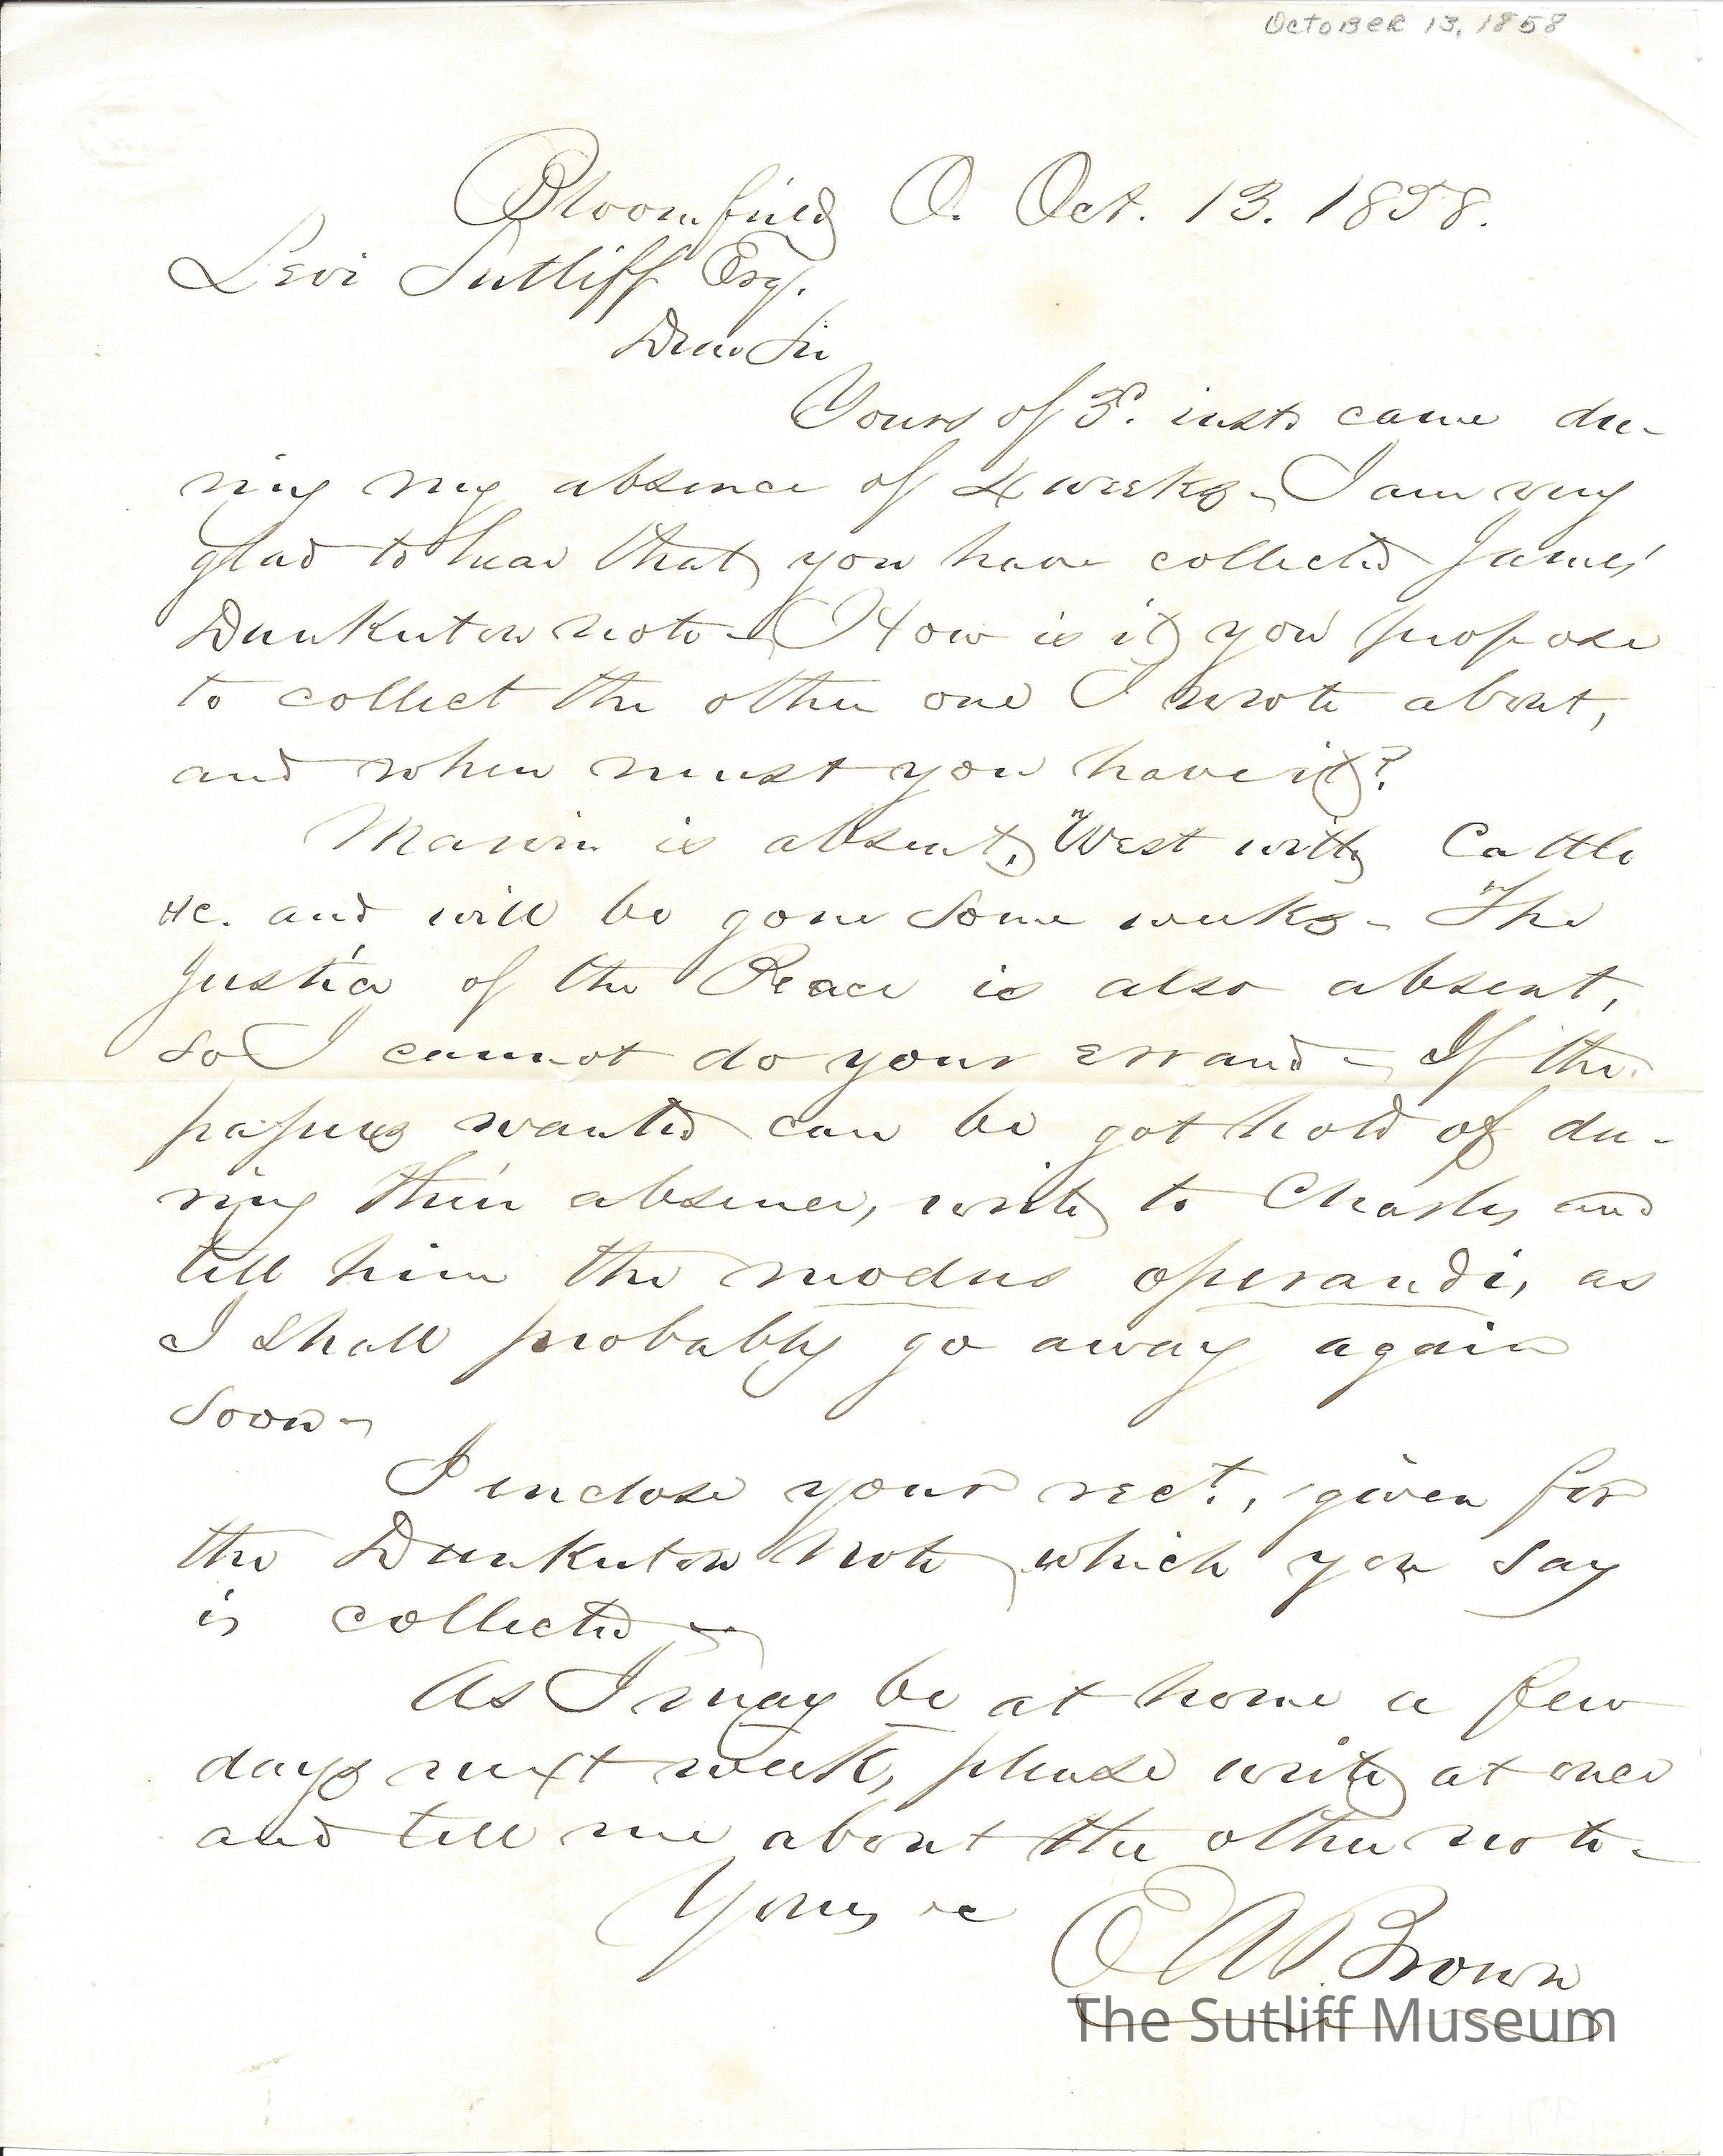 October 13, 1858
Bloomfield O. Oct. 13. 1858.
Levi Sutliff Esq.
Dear Sir
Yours of 3d. inst. came du-
ring my absence of 4 weeks - I am very
glad to hear that you have collected James'
Dunkerton note - How is it you propose
to collect the other one I wrote about,
and when must you have it?
Marvin is absent, West with Cattle
&c. and will be gone some weeks - The
Justice of the Peace is also absent,
so I cannot do your errand - If the
papers wanted can be got hold of du-
ring their absence, write to Charles and
tell him the modus operandi, as
I shall probably go away again
soon -
I enclose your rect., given for
the Dunkerton note which you say
is collected -
As I may be at home a few
days next week, please write at once
and tell me about the other note -
Yours &c
E A Brown
The Sutliff Museum